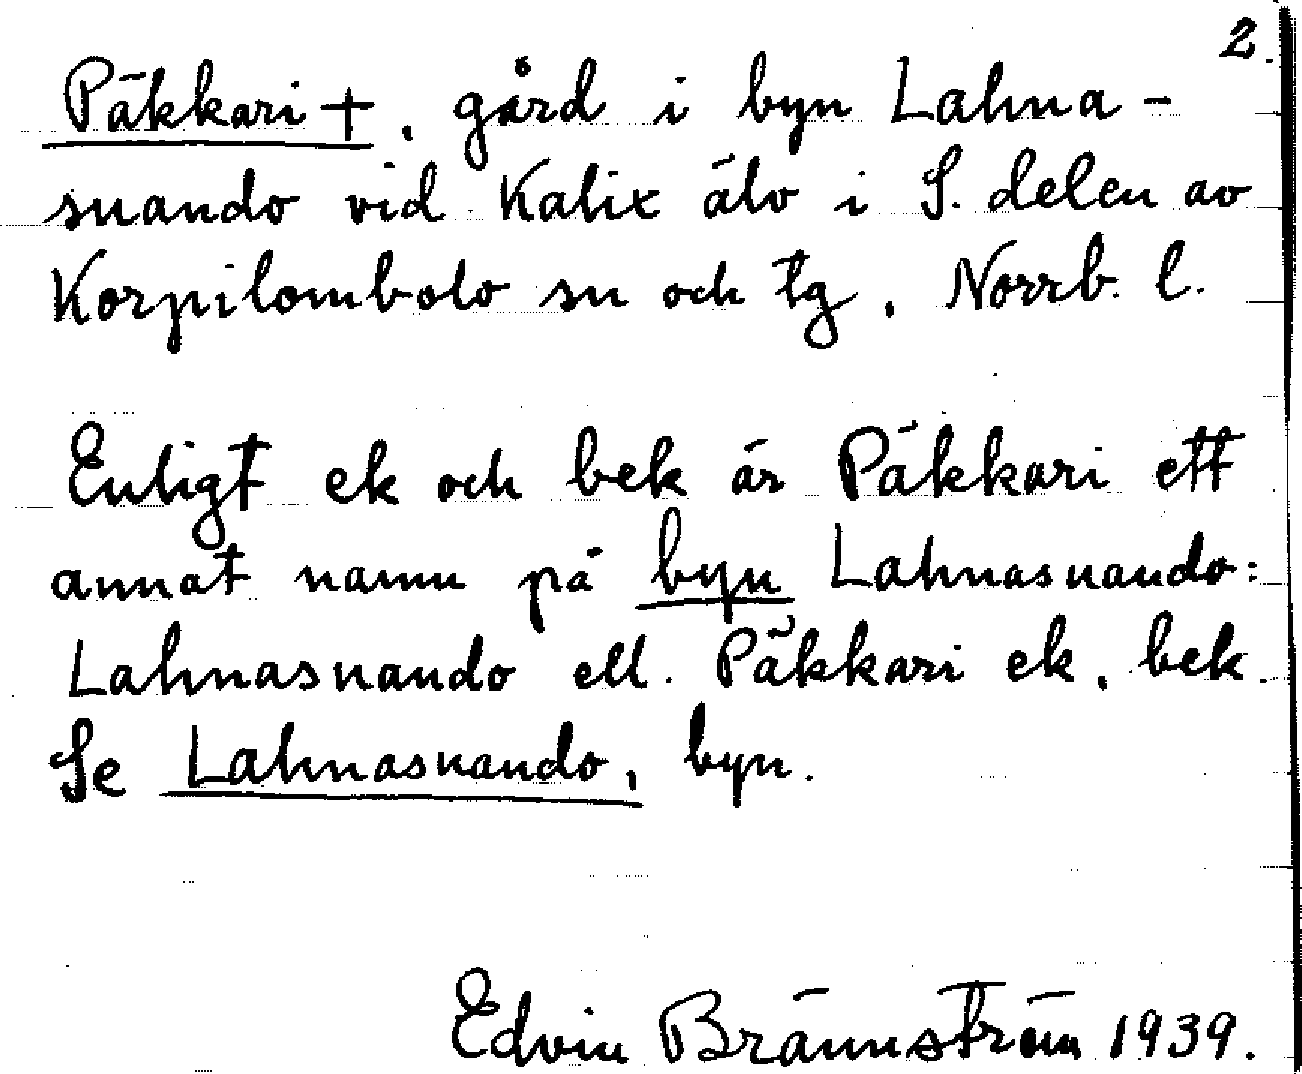 2.
Päkkari +, gård i byn Lahna-
suando vid Kalix älv i S. delen av
Korpilombolo sn och tg, Norrb. l.
Enligt ek och bek är Päkkari ett
annat namn på byn Lahnasuando:
Lahnasuando ell. Päkkari ek, bek.
Se Lahnasuando, byn.
Edvin Brännström 1939.